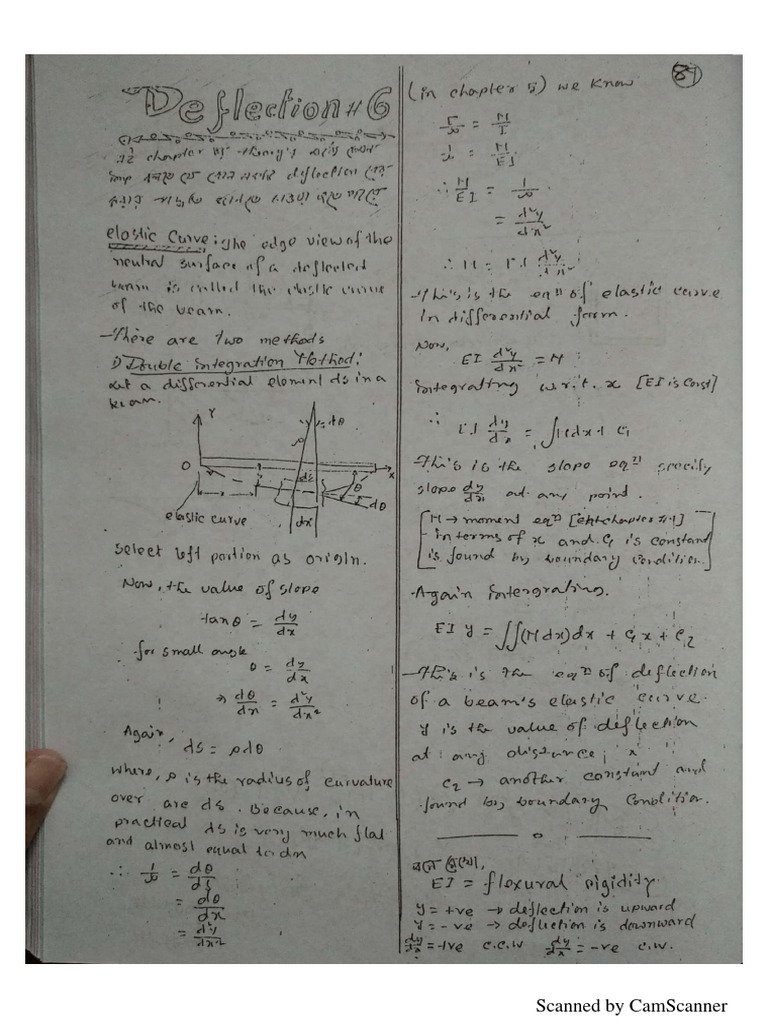 Deflection #6
elastic Curve: The edge view of the
neutral surface of a deflected
beam is called the elastic curve
of the beam.
There are two methods
i) Double integration Method:
Let a differential element ds in a
beam.
Y
dθ
ρ
O
x
ds
θ
dθ
elastic curve
dx
Select left portion as origin.
Now, the value of slope
tanθ = dy/dx
for small angle
θ = dy/dx
⇒ dθ/dx = d²y/dx²
Again,
ds = ρdθ
where, ρ is the radius of curvature
over arc ds. Because, in
practical ds is very much flat
and almost equal to dx
∴ 1/ρ = dθ/ds
= dθ/dx
= d²y/dx²
87
(in chapter 5) we know
E/ρ = M/I
1/ρ = M/EI
∴ M/EI = 1/ρ
= d²y/dx²
∴ M = EI d²y/dx²
This is the eqn of elastic curve
in differential form.
Now,
EI d²y/dx² = M
integrating w.r.t. x [EI is const]
∴ EI dy/dx = ∫Mdx + C₁
This is the slope eqn specify
slope dy/dx at any point.
[M → moment eqn
in terms of x and C₁ is constant
is found by boundary condition.]
Again intergrating.
EI y = ∫∫(Mdx)dx + C₁x + C₂
This is the eqn of deflection
of a beam's elastic curve.
y is the value of deflection
at any distance, x
C₂ → another constant and
found by boundary condition.
মনে রেখো,
EI = flexural rigidity.
y = +ve → deflection is upward
y = -ve → deflection is downward
dy/dx = +ve c.c.w dy/dx = -ve c.w.
Scanned by CamScanner